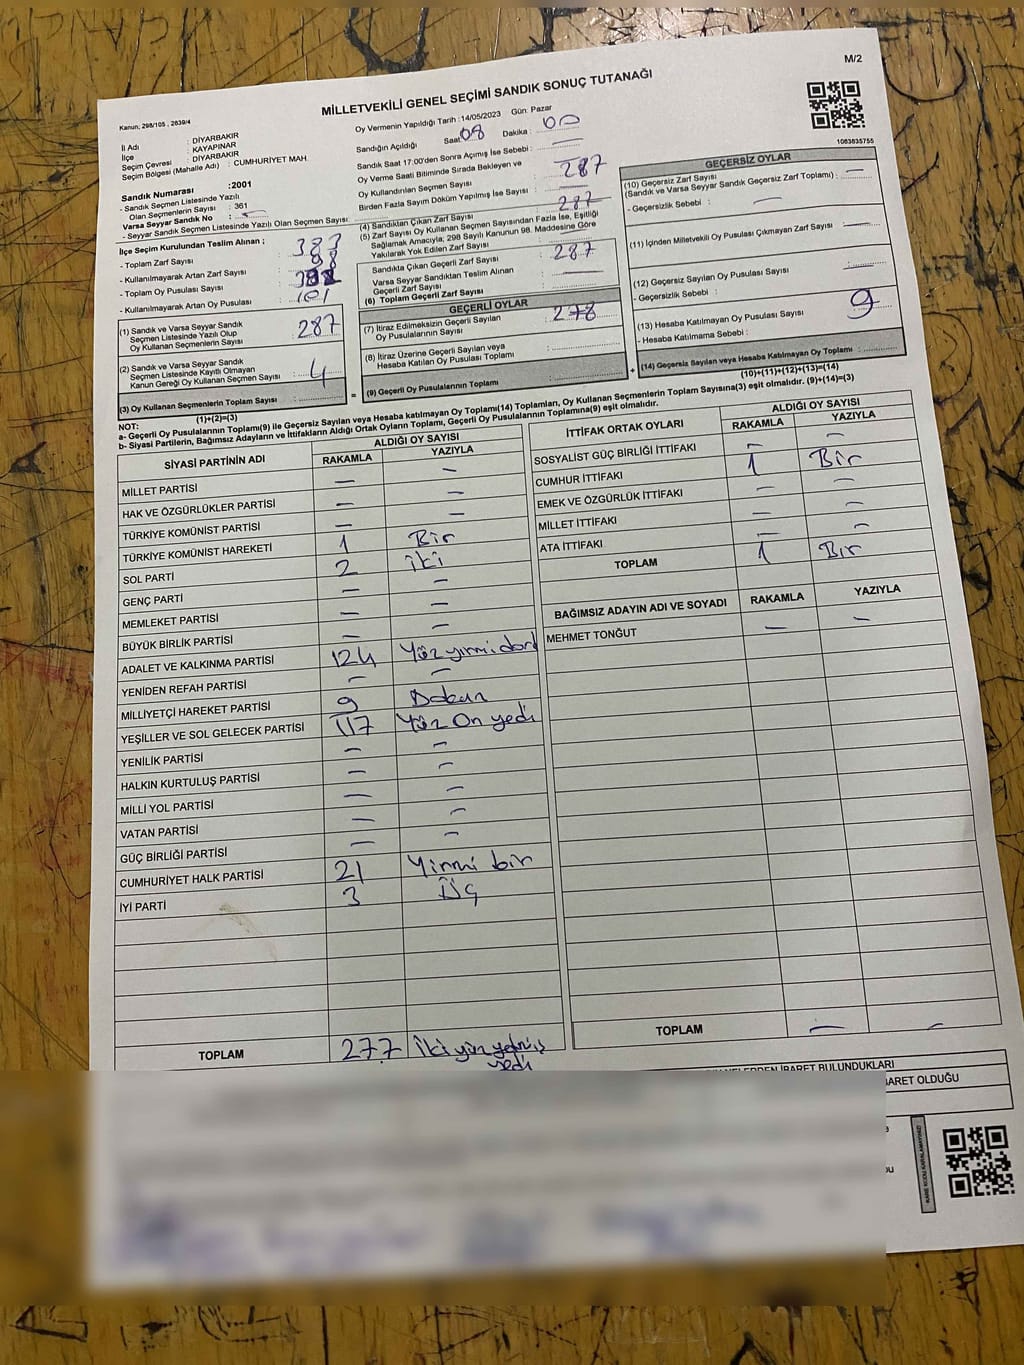 M/2
MİLLETVEKİLİ GENEL SEÇİMİ SANDIK SONUÇ TUTANAĞI
Kanun; 298/105 , 2839/4
İl Adı : DİYARBAKIR
İlçe : KAYAPINAR
Seçim Çevresi : DİYARBAKIR
Seçim Bölgesi (Mahalle Adı) : CUMHURİYET MAH.
Sandık Numarası : 2001
- Sandık Seçmen Listesinde Yazılı
Olan Seçmenlerin Sayısı : 361
Varsa Seyyar Sandık No :
- Seyyar Sandık Seçmen Listesinde Yazılı Olan Seçmen Sayısı:
İlçe Seçim Kurulundan Teslim Alınan ;
- Toplam Zarf Sayısı : 383
- Kullanılmayarak Artan Zarf Sayısı :
- Toplam Oy Pusulası Sayısı :
- Kullanılmayarak Artan Oy Pusulası : 101
(1) Sandık ve Varsa Seyyar Sandık
Seçmen Listesinde Yazılı Olup
Oy Kullanan Seçmenlerin Sayısı : 287
(2) Sandık ve Varsa Seyyar Sandık
Seçmen Listesinde Kayıtlı Olmayan
Kanun Gereği Oy Kullanan Seçmen Sayısı : 4
(3) Oy Kullanan Seçmenlerin Toplam Sayısı :
(1)+(2)=(3)
Oy Vermenin Yapıldığı Tarih : 14/05/2023 Gün: Pazar
Sandığın Açıldığı Saat: 08 Dakika : 00
Sandık Saat 17:00'den Sonra Açımış İse Sebebi : —
Oy Verme Saati Bitiminde Sırada Bekleyen ve
Oy Kullandırılan Seçmen Sayısı : 287
Birden Fazla Sayım Döküm Yapılmış İse Sayısı : —
(4) Sandıktan Çıkan Zarf Sayısı : 287
(5) Zarf Sayısı Oy Kullanan Seçmen Sayısından Fazla İse, Eşitliği
Sağlamak Amacıyla; 298 Sayılı Kanunun 98. Maddesine Göre
Yakılarak Yok Edilen Zarf Sayısı : —
Sandıkta Çıkan Geçerli Zarf Sayısı : 287
Varsa Seyyar Sandıktan Teslim Alınan
Geçerli Zarf Sayısı : —
(6) Toplam Geçerli Zarf Sayısı :
GEÇERLİ OYLAR
(7) İtiraz Edilmeksizin Geçerli Sayılan
Oy Pusulalarının Sayısı : 278
(8) İtiraz Üzerine Geçerli Sayılan veya
Hesaba Katılan Oy Pusulası Toplamı :
(9) Geçerli Oy Pusulalarının Toplamı :
1083835755
GEÇERSİZ OYLAR
(10) Geçersiz Zarf Sayısı
(Sandık ve Varsa Seyyar Sandık Geçersiz Zarf Toplamı) : —
- Geçersizlik Sebebi : —
(11) İçinden Milletvekili Oy Pusulası Çıkmayan Zarf Sayısı : —
(12) Geçersiz Sayılan Oy Pusulası Sayısı : —
- Geçersizlik Sebebi :
(13) Hesaba Katılmayan Oy Pusulası Sayısı : 9
- Hesaba Katılmama Sebebi :
(14) Geçersiz Sayılan veya Hesaba Katılmayan Oy Toplamı :
(10)+(11)+(12)+(13)=(14)
NOT:
a- Geçerli Oy Pusulalarının Toplamı(9) ile Geçersiz Sayılan veya Hesaba katılmayan Oy Toplamı(14) Toplamları, Oy Kullanan Seçmenlerin Toplam Sayısına(3) eşit olmalıdır. (9)+(14)=(3)
b- Siyasi Partilerin, Bağımsız Adayların ve İttifakların Aldığı Ortak Oyların Toplamı, Geçerli Oy Pusulalarının Toplamına(9) eşit olmalıdır.
SİYASİ PARTİNİN ADI ALDIĞI OY SAYISI
RAKAMLA YAZIYLA
MİLLET PARTİSİ — —
HAK VE ÖZGÜRLÜKLER PARTİSİ — —
TÜRKİYE KOMÜNİST PARTİSİ — —
TÜRKİYE KOMÜNİST HAREKETİ 1 Bir
SOL PARTİ 2 iki
GENÇ PARTİ — —
MEMLEKET PARTİSİ — —
BÜYÜK BİRLİK PARTİSİ — —
ADALET VE KALKINMA PARTİSİ 124 Yüz yirmi dört
YENİDEN REFAH PARTİSİ — —
MİLLİYETÇİ HAREKET PARTİSİ 9 Dokuz
YEŞİLLER VE SOL GELECEK PARTİSİ 117 Yüz On yedi
YENİLİK PARTİSİ — —
HALKIN KURTULUŞ PARTİSİ — —
MİLLİ YOL PARTİSİ — —
VATAN PARTİSİ — —
GÜÇ BİRLİĞİ PARTİSİ — —
CUMHURİYET HALK PARTİSİ 21 Yirmi bir
İYİ PARTİ 3 Üç
TOPLAM 277 İki yüz yetmiş yedi
İTTİFAK ORTAK OYLARI ALDIĞI OY SAYISI
RAKAMLA YAZIYLA
SOSYALİST GÜÇ BİRLİĞİ İTTİFAKI — —
CUMHUR İTTİFAKI 1 Bir
EMEK VE ÖZGÜRLÜK İTTİFAKI — —
MİLLET İTTİFAKI — —
ATA İTTİFAKI — —
TOPLAM 1 Bir
BAĞIMSIZ ADAYIN ADI VE SOYADI RAKAMLA YAZIYLA
MEHMET TONĞUT — —
TOPLAM — —
İBARET BULUNDUKLARI
BARET OLDUĞU